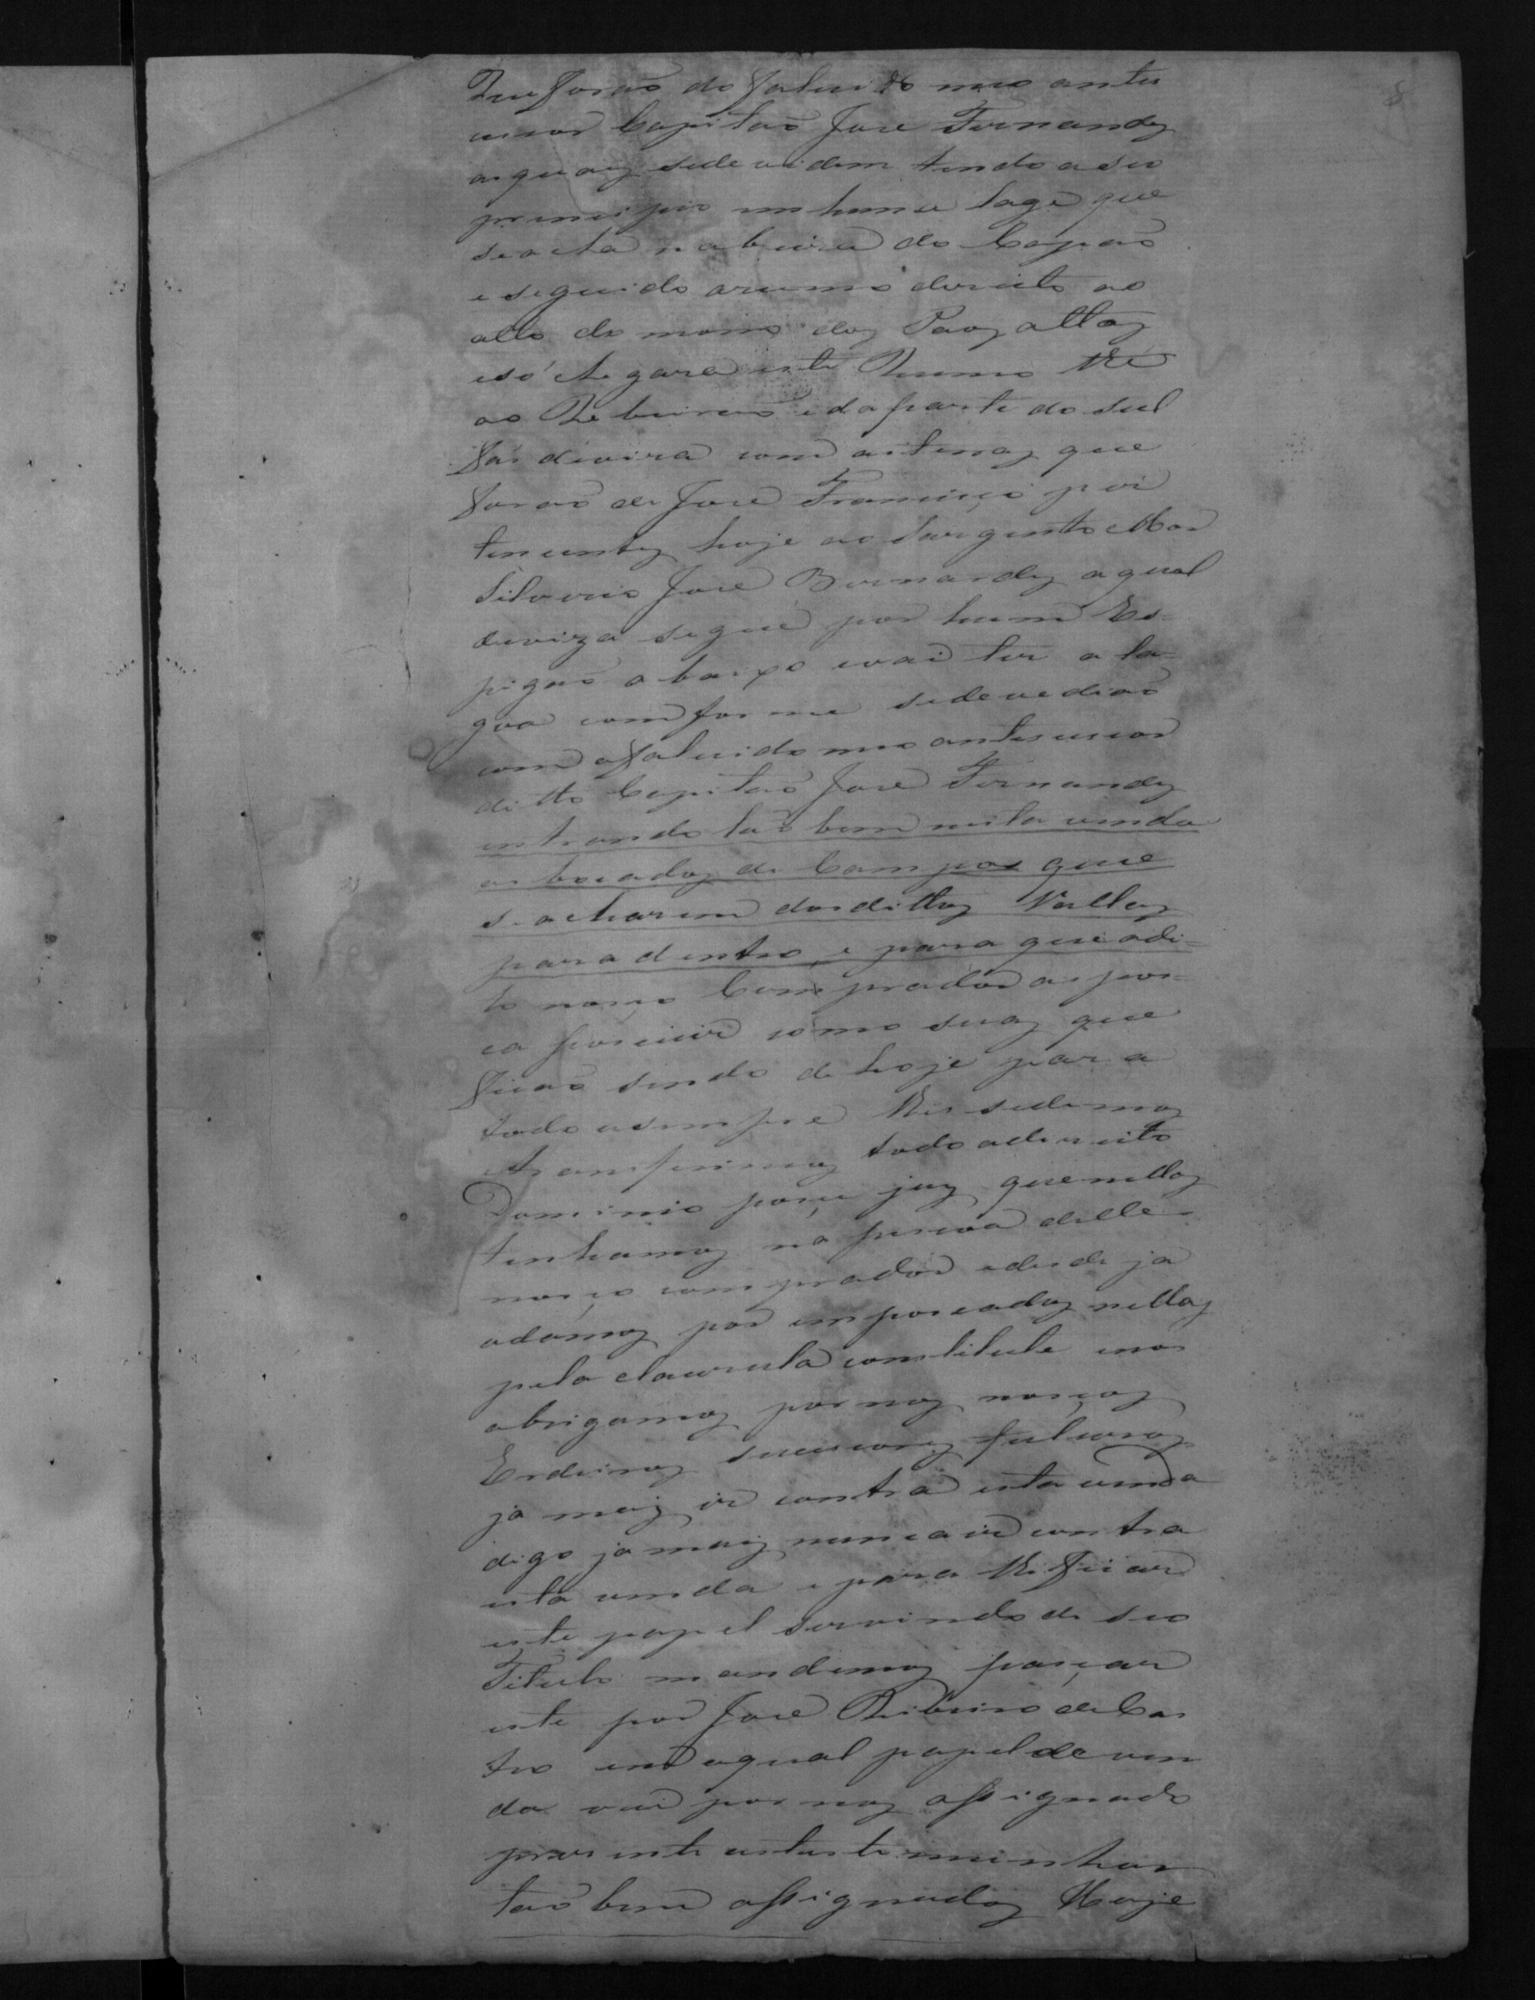 8
Que forão do falecido meo ante
cessor Capitão Jose Fernandez
as quaes sedevidem tendo o seo
principio em huma lage que
seacha na beira do Capão
e seguido orumo direito ao
alto do morro dos Paos altos
e só chegará este Rumo the
ao Ribeirão e da parte do sul
fas diviza com asterras que
forão de Jose Francisco per
tencentes hoje ao Sargento Mor
Silverio Jose Bernardes a qual
deviza segue por hum Es-
pigão abaixo evai ter a la-
goa comforme sedevedião
com ofalecido meo antesecor
ditto Capitão Jose Fernandes
entrando tão bem nesta venda
os bocados de Campos que
seacharem dosdittos Vallos
para dentro, e para que odi-
to nosso Comprador as pos-
ca possuir como suas que
ficão sendo de hoje para
todo osempre lhe sedemos
etransferimos todo odireito
Dominio posse jus que nellas
tenhamos na pessoa delle
nosso comprador edesde ja
odamos por empossados nellas
pela clausula constitute enos
obrigamos por nos nossos
Erdeiros sucessores futuros
ja mais ir contra esta venda
digo ja mais nunca ir contra
esta venda e para lhe ficar
este papel servindo de seo
Titulo mandemos passar
este por Jose Ribeiro de Cas
tro em oqual papel de ven
da vai por nos assignado
prezente astestemunhas
tão bem assignados Hoje